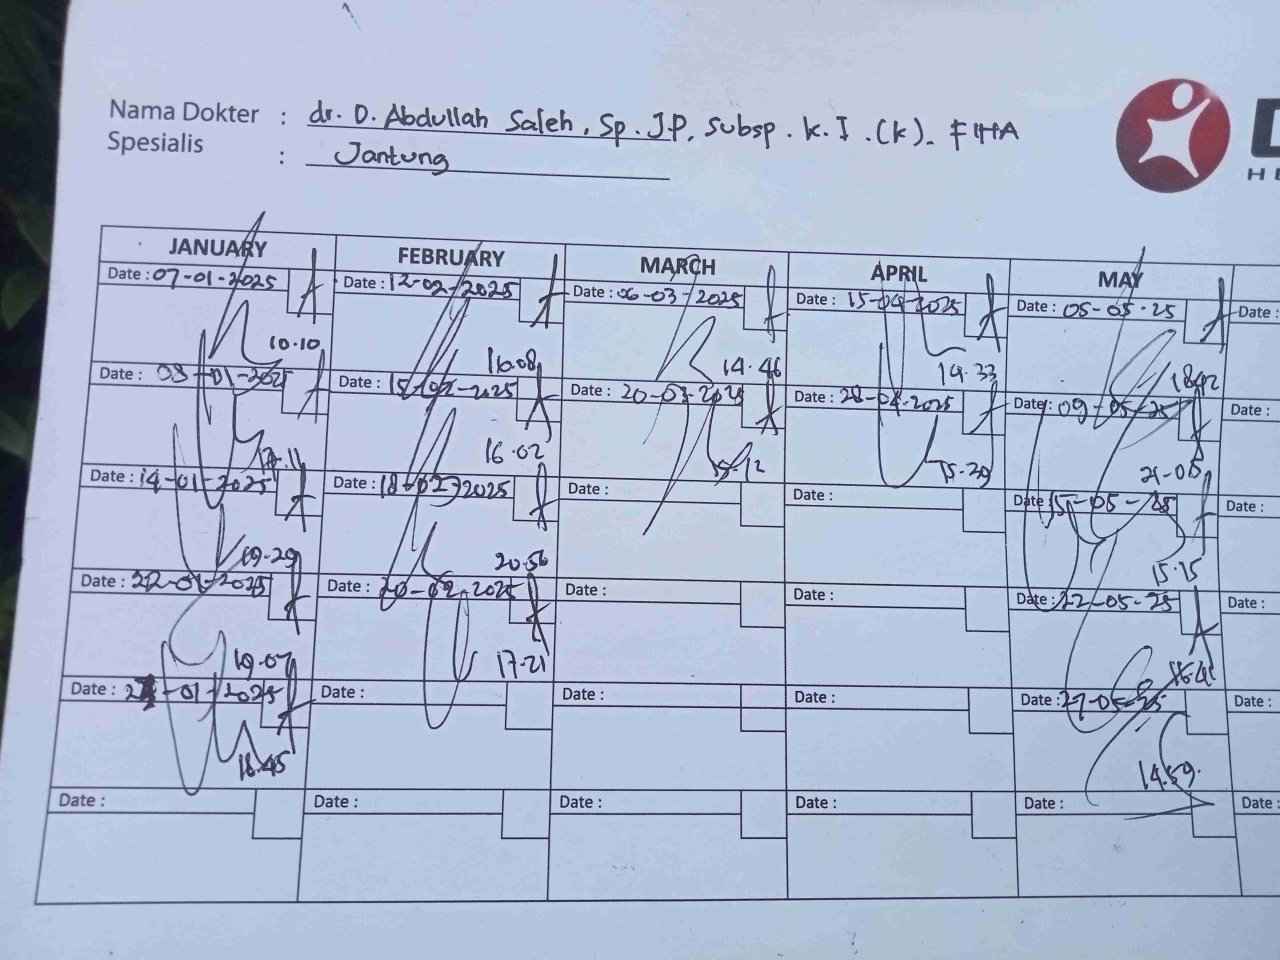 Nama Dokter : dr. D. Abdullah Saleh, Sp. JP, Subsp. K. I. (K). FIHA
Spesialis : Jantung
D
HE
JANUARY FEBRUARY MARCH APRIL MAY
Date : 07-01-2025 Date : 12-02-2025 Date : 06-03-2025 Date : 15-04-2025 Date : 05-05-25 Date :
10.10 16.08 14.46 14.33
Date : -01-2025 Date : 15-02-2025 Date : 20-03-2025 Date : 28-04-2025 Date : 09-05-25 Date :
16.02 15.12 15.29 21-08
Date : 14-01-2025 Date : 18-02-2025 Date : Date : Date : 15-05-25 Date :
19-29 20.56 15.15
Date : 22-01-2025 Date : 20-02-2025 Date : Date : Date : 22-05-25 Date :
19.07 17-21
Date : -01-2025 Date : Date : Date : Date : 27-05-25 Date :
18.45 14.59
Date : Date : Date : Date : Date : Date :